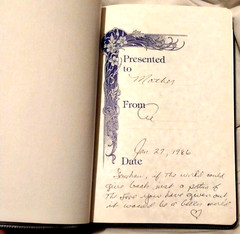 Presented
to
Mother
From
Jan 27, 1986
Date
if the world would
give back just a portion of
the love you have given out
it would be a better world